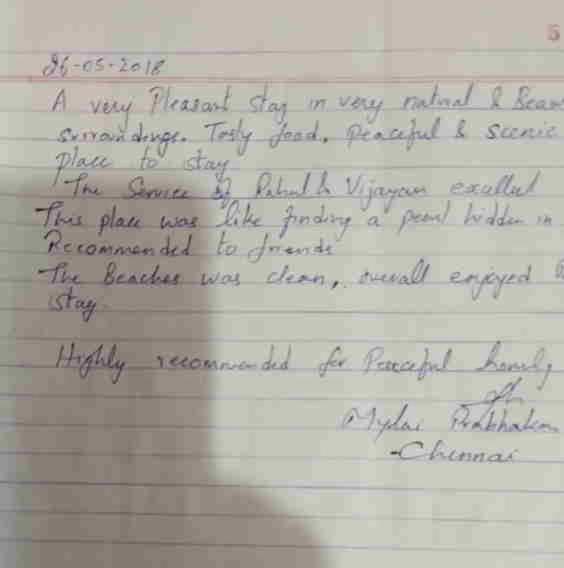 5
26-05-2018
A very Pleasant stay in very natural &
surroundings. Tasty food, Peaceful & scenic
place to stay
The Service of & Vijayan excellent
This place was like finding a pearl hidden in
Recommended to friends
The Beaches was clean, overall enjoyed
stay.
Highly recommended for Peaceful homely
Mylai Prabhakar
-Chennai